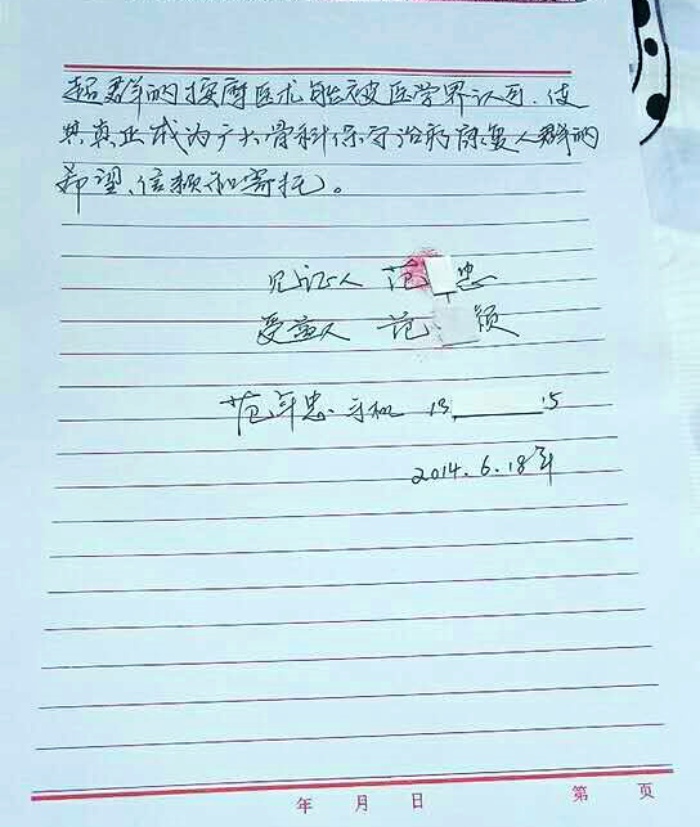 超群的按摩医术能被医学界认可.使
其真正成为广大骨科保守治疗康复人群的
希望、信赖和寄托。
见证人 范 忠
受益人 范 颖
范 忠 手机 13 15
2014.6.18年
年 月 日 第 页